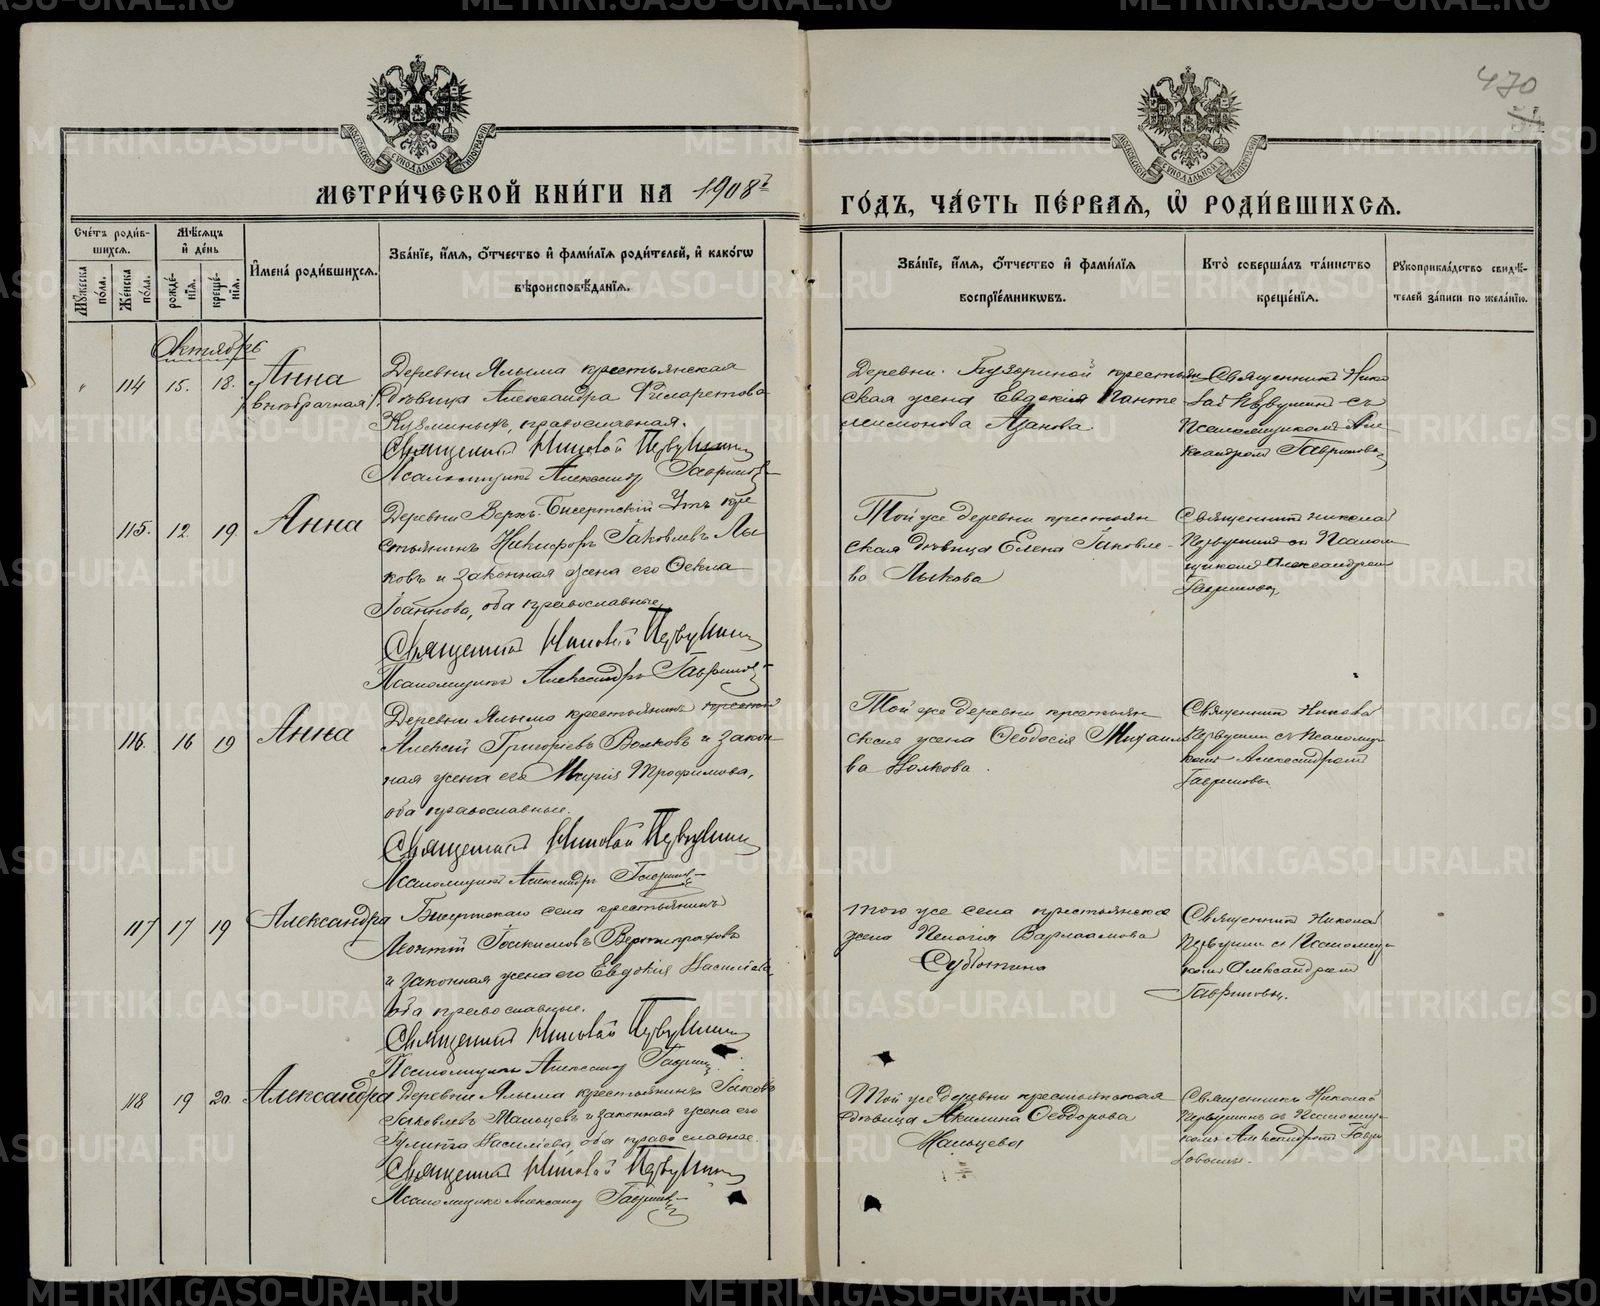 470
МОСКОВСКОЙ СѴНОДАЛЬНОЙ ТИПОГРАФІИ
МОСКОВСКОЙ СѴНОДАЛЬНОЙ ТИПОГРАФІИ
МЕТРИ́ЧЕСКОЙ КНИ́ГИ НА 1908 г.
ГО́ДЪ, ЧА́СТЬ ПЕ́РВАЯ, Ѽ РОДИ́ВШИХСЯ.
Сче́тъ роди́вшихся.
Му́жеска по́ла.
Же́нска по́ла.
Мѣ́сяцъ и де́нь
рожде́нія.
креще́нія.
И҆мена̀ роди́вшихся.
Зва́ніе, и҆́мя, ѻ҆́тчество и҆ фами́лїя роди́телей, и҆ како́гѡ вѣроисповѣ́данїя.
Зва́ніе, и҆́мя, ѻ҆́тчество и҆ фами́лїя воспрїе́мникѡвъ.
Кто̀ соверша́лъ та́инство креще́нїя.
Рукоприкла́дство свидѣ́телей за́писи по жела́нїю.
Октябрь
114 15. 18. Анна (внѣбрачная)
Деревни Ялыма крестьянская
дѣвица Александра Филаретова
Кузминыхъ, православная.
Священникъ Николай Первушинъ
Псаломщикъ Александръ Гавриловъ
Деревни крестьян
ская жена Евдокія Панте
леимонова Азанова.
Священникъ Нико
лай Первушинъ съ
Псаломщикомъ Але
ксандромъ Гавриловы
115. 12. 19. Анна
Деревни Верхъ-Бисертскій Утъ кре
стьянинъ Никифоръ Іаковлевъ Лы
ковъ и законная жена его Ѳекла
Іоаннова, оба православные
Священникъ Николай Первушинъ
Псаломщикъ Александръ Гавриловъ
Той же деревни крестьян
ская дѣвица Елена Іаковле
ва Лыкова
Священникъ Николай
Первушинъ съ Псалом
щикомъ Александромъ
Гавриловы
116. 16 19 Анна
Деревни Ялыма крестьянинъ
Алексій Григорьевъ Волковъ и закон
ная жена его Марія Трофимова,
оба православные.
Священникъ Николай Первушинъ
Псаломщикъ Александръ Гавриловъ
Той же деревни крестьян
ская жена Ѳеодосія Михаило
ва Волкова.
Священникъ Николай
Первушинъ съ Псаломщи
комъ Александромъ
Гавриловы
117 17 19 Александра
Бисертскаго села крестьянинъ
Леонтій Іоакимовъ Вертипраховъ
и законная жена его Евдокія Васильева,
оба православные.
Священникъ Николай Первушинъ
Псаломщикъ Александръ Гавриловъ
Того же села крестьянская
жена Пелагія Варлаамова
Субботина
Священникъ Николай
Первушинъ съ Псаломщи
комъ Александромъ
Гавриловы.
118 19 20. Александра
Деревни Ялыма крестьянинъ Іаковъ
Іаковлевъ Мальцевъ и законная жена его
Іулитта Васильева, оба православные.
Священникъ Николай Первушинъ
Псаломщикъ Александръ Гавриловъ
Той же деревни крестьянская
дѣвица Акилина Ѳеодорова
Мальцева
Священникъ Николай
Первушинъ съ Псаломщи
комъ Александромъ Гаври
ловымъ.
METRIKI.GASO-URAL.RU